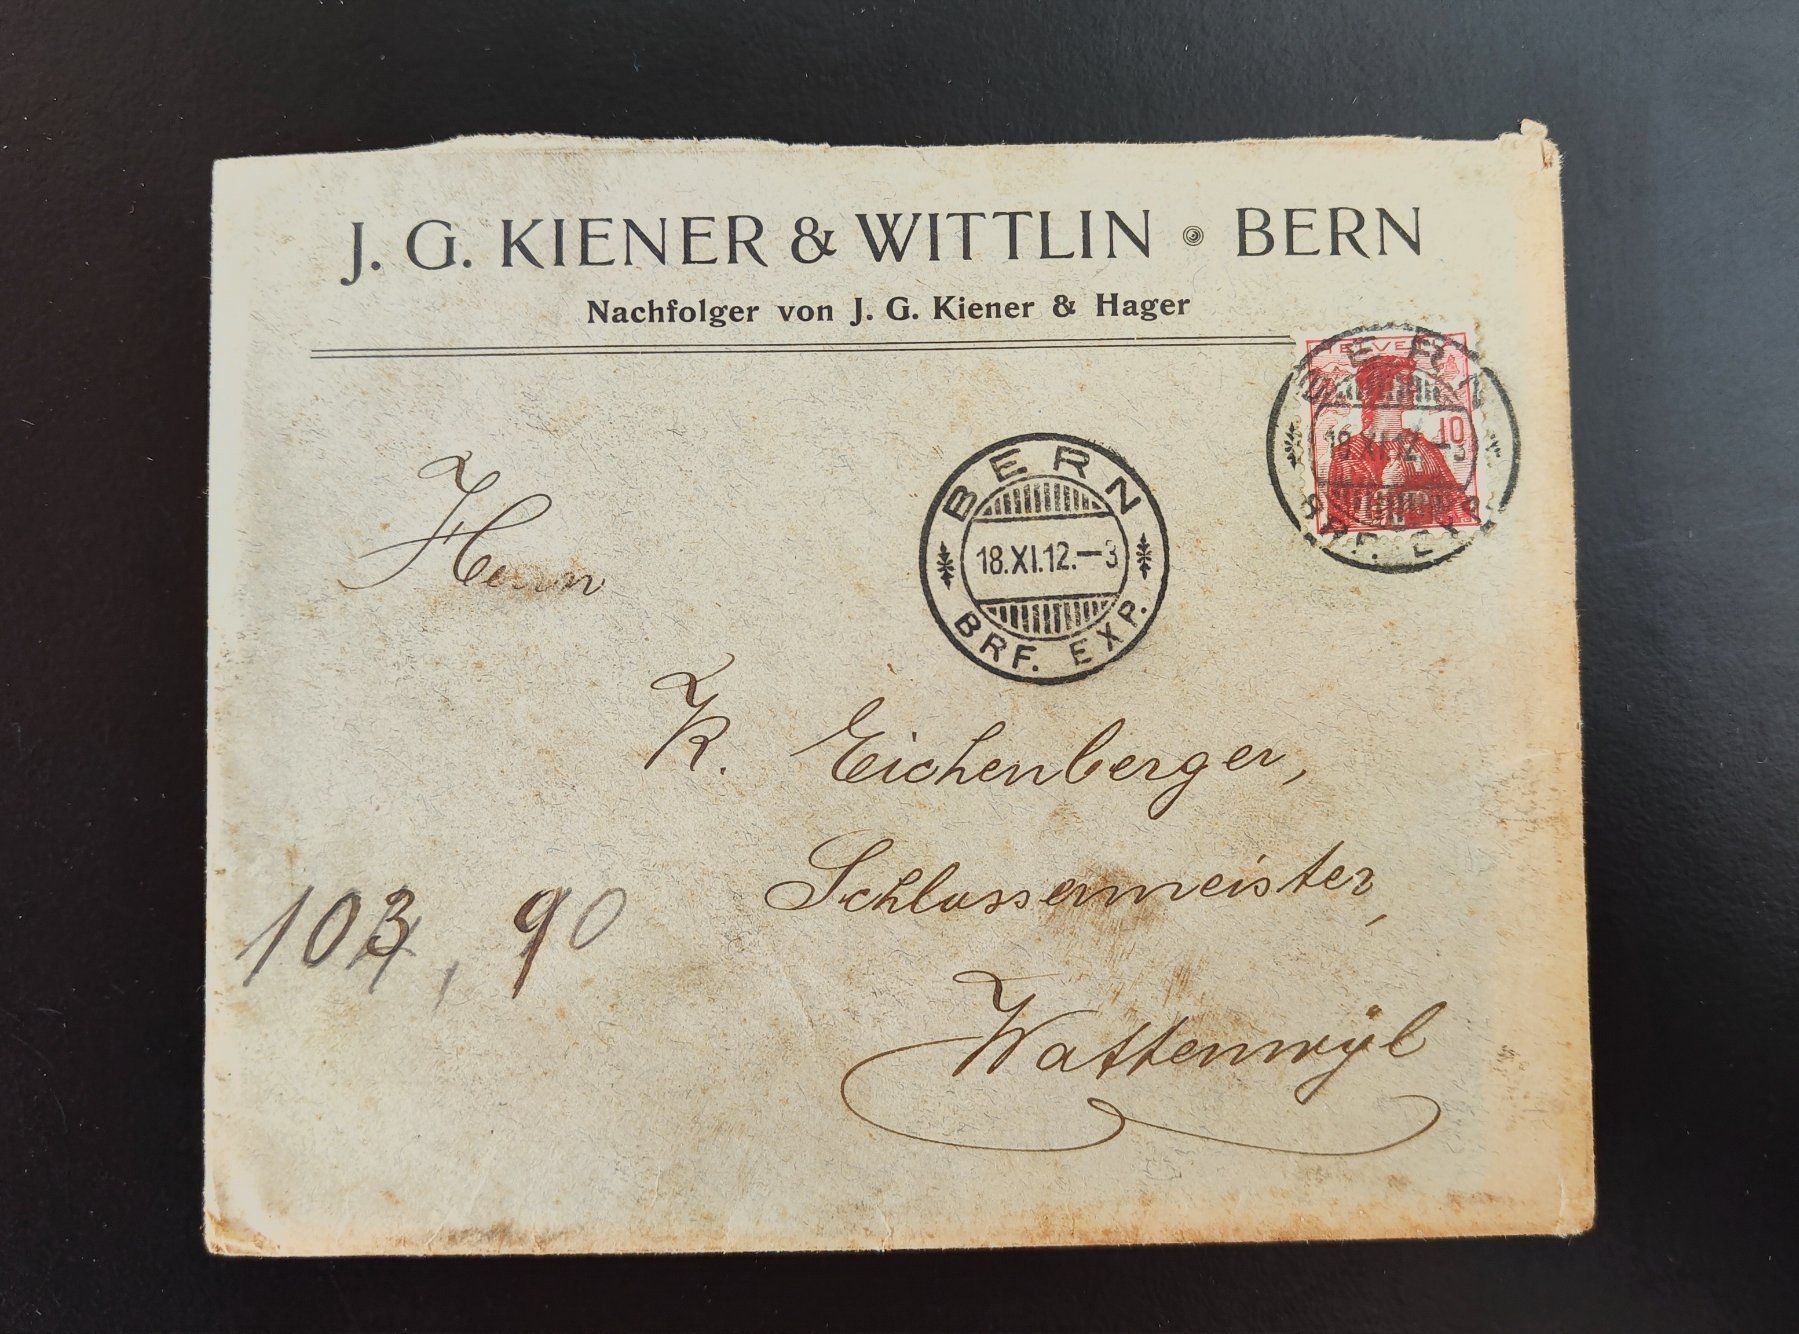 J. G. KIENER & WITTLIN • BERN
Nachfolger von J. G. Kiener & Hager
HELVETIA
10
BERN
18.XI.12.–3
BRF. EXP.
BERN
18.XI.12.–3
BRF. EXP.
Herrn
K. Eichenberger,
Schlossermeister,
Wattenwyl
103, 90